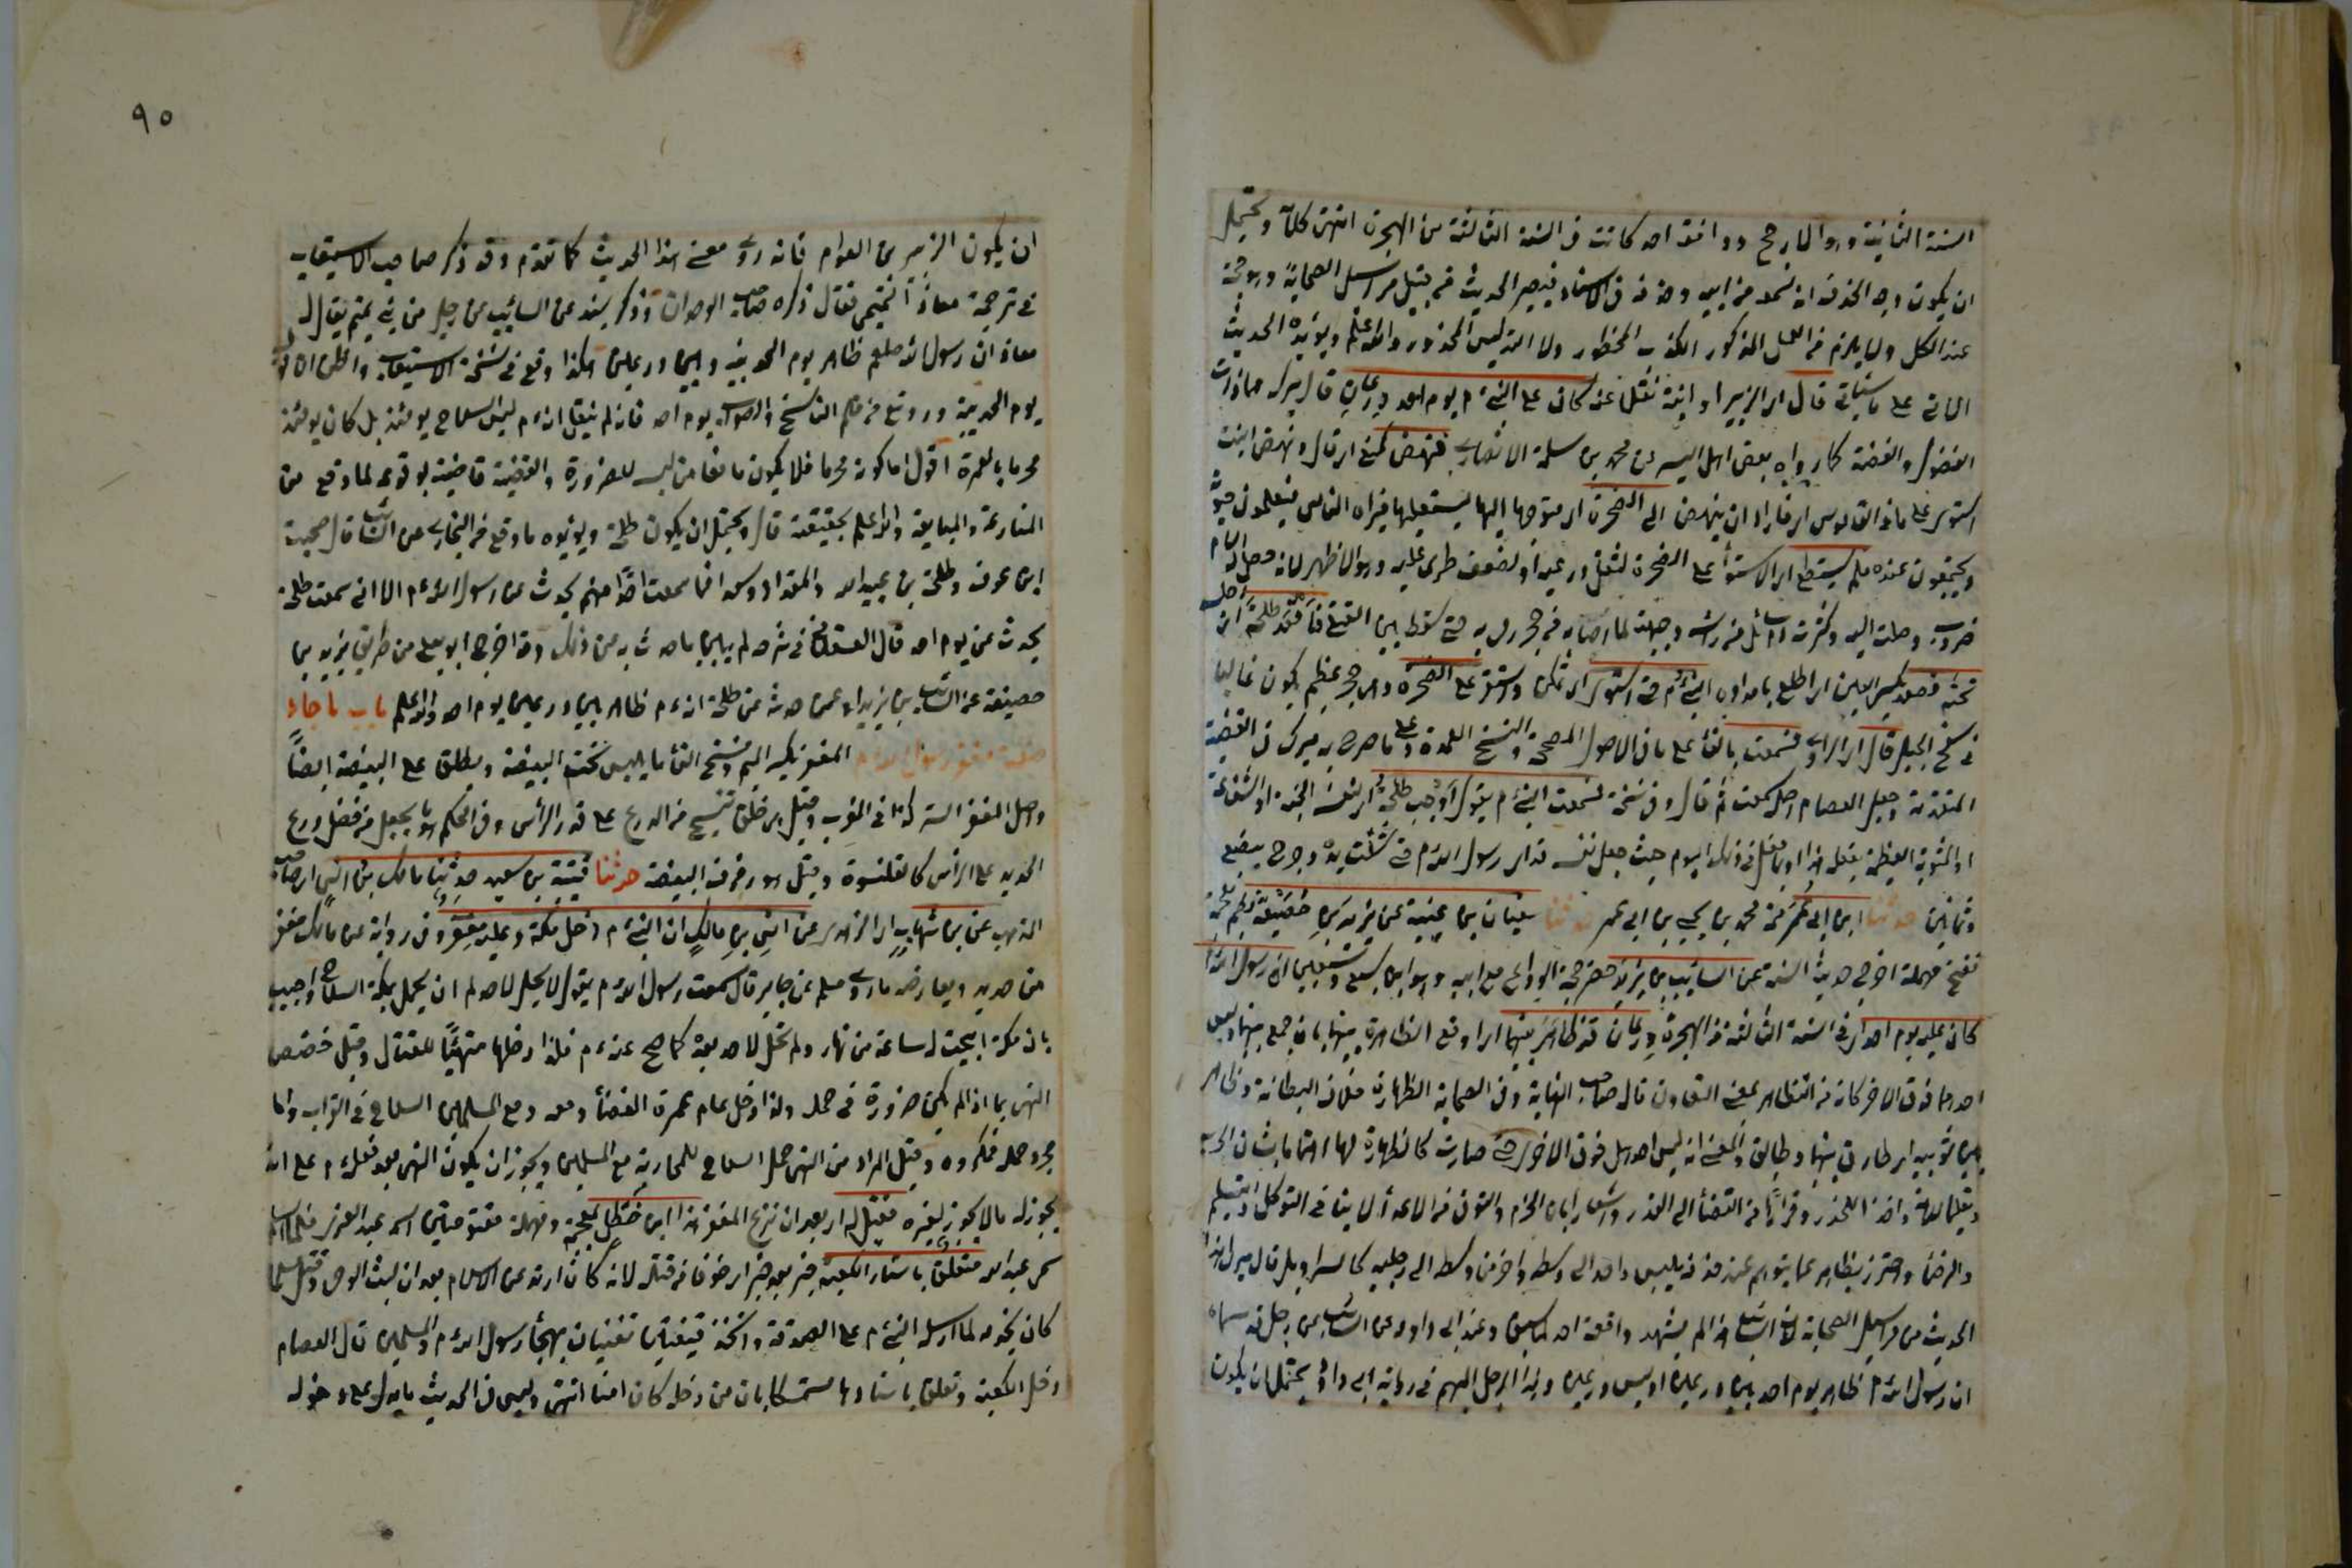 السنة الثانية وهو الارجح ووافقه احد كانت في السنة الثالثة من الهجرة انتهى كلامه ويحتمل
ان يكون وجه الحذف انه سمعه من ابيه وحذفه في الاسناد فيصير الحديث من قبيل مراسيل الصحابة وهو حجة
عند الكل ولا يلزم من العمل المذكور الكذب المحظور ولا التدليس المحذور والله اعلم ويؤيده الحديث
الآتي على ما سيأتي قال اي الزبير او ابنه نقلا عنه كان على النبي م يوم احد درعان قال ميرك هما ذات
الفضول والفضة كما رواه بعض اهل السير عن محمد بن مسلمة الانصاري فنهض كمنع اي قام ونهض النبت
استوى على ما في القاموس اي فاراد ان ينهض الى الصخرة اي متوجها اليها ليستعليها فيراه الناس فيعلمون حيوته
ويجتمعون عنده فلم يستطع اي الاستواء على الصخرة لثقل درعيه او لضعف طرى عليه وهو الاظهر لانه حصل له آلام
ضروب وصلت اليه وكثرة دم سائل من راسه وجبهته لما اصابه من حجر رمي به حتى سقط بين القتلى فاقعد طلحة اي اجلسه
تحته فصعد بكسر العين اي طلع بامداده النبي م حتى استوى اي تمكن واستقر على الصخرة وهي حجر عظيم يكون غالبا
في سفح الجبل قال اي الراوي فسمعت بالفاء على ما في الاصول المصححة والنسخ المعتمدة وعلى ما صرح به ميرك في القضية
المتقدمة وجعل العصام اصله سمعت ثم قال وفي نسخة فسمعت النبي م يقول اوجب طلحة اي لنفسه الجنة او الشفاعة
او المثوبة العظيمة بفعله هذا او بما فعل في ذلك اليوم حيث جعل نفسه فداء رسول الله م حتى شلت يده وجرح ببضع
وثمانين حدثنا ابن ابي عمر محمد بن يحيى بن ابي عمر حدثنا سفيان بن عيينة عن يزيد بن خصيفة بضم معجمة
ففتح مهملة اخرج حديثه الستة عن السائب بن يزيد حضر حجة الوداع مع ابيه وهو ابن سبع سنين ان رسول الله م
كان عليه يوم احد اي في السنة الثالثة من الهجرة درعان قد ظاهر بينهما اي اوقع الظاهرة بينهما بان جمع بينهما ولبس
احدهما فوق الاخر كانه من التظاهر بمعنى التعاون قال صاحب النهاية وفي الصحاح الظهارة خلاف البطانة وظاهر
بين ثوبين اي طارق بينهما وطابق والمعنى انه لبس احدهما فوق الاخر حتى صارت كالظهارة لها اهتماما بشان الحرب
وتعليما للامة واخذا للحذر وفرارا من القضاء الى القدر واشعارا بان الحزم والتوقي من الاعداء لا ينافي التوكل والتسليم
والرضاء واحترز بظاهر عما يتوهم عند حذفه من لبس واحد الى وسطه واخر من وسطه الى رجليه كالسراويل قال ميرك هذا
الحديث من مراسيل الصحابة لان السائب هذا لم يشهد واقعة احد لما سبق وعند ابي داود عن السائب عن رجل قد سماه
ان رسول الله م ظاهر يوم احد بين درعين او لبس درعين وهذا الرجل المبهم في رواية ابي داود يحتمل ان يكون
٩٠
ان يكون الزبير بن العوام فانه روى معنى هذا الحديث كما تقدم وقد ذكر صاحب الاستيعاب
في ترجمة معاذ التميمي فقال ذكره صاحب الوحدان وذكر بسنده عن السائب عن رجل من بني تميم يقال له
معاذ ان رسول الله صلعم ظاهر يوم الحديبية بين درعين هكذا وقع في نسخة الاستيعاب واظن ان قوله
يوم الحديبية وقع من قلم الناسخ والصواب يوم احد فانه لم ينقل انه م لبس السلاح يومئذ بل كان يومئذ
محرما بالعمرة اقول اما كونه محرما فلا يكون مانعا من لبسه للضرورة والقضية قاضية بوقوعه لما وقع من
المنازعة والمبايعة والله اعلم بحقيقته قال ويحتمل ان يكون طلحة ويؤيده ما وقع في البخاري عن السائب قال صحبت
ابن عوف وطلحة بن عبيد الله والمقداد وسعدا فما سمعت احدا منهم يحدث عن رسول الله م الا اني سمعت طلحة
يحدث عن يوم احد قال العسقلاني في شرحه لم يبين ما حدث به من ذلك وقد اخرج ابو يعلى من طريق يزيد بن
خصيفة عن السائب بن يزيد او عمن حدثه عن طلحة انه م ظاهر بين درعين يوم احد والله اعلم باب ما جاء
في صفة مغفر رسول الله م المغفر بكسر الميم وفتح الفاء ما يلبس تحت البيضة ويطلق على البيضة ايضا
واصل المغفر الستر كذا في المغرب وقيل هو حلق تنسج من الدرع على قدر الرأس وفي المحكم هو ما يجعل من فضل درع
الحديد على الرأس كالقلنسوة وقيل هو رفرف البيضة حدثنا قتيبة بن سعيد حدثنا مالك بن انس اي صاحب
المذهب عن ابن شهاب اي الزهري عن انس بن مالك ان النبي م دخل مكة وعليه مغفر وفي رواية عن مالك مغفر
من حديد ويعارضه ما روى مسلم عن جابر قال سمعت رسول الله م يقول لا يحل لاحدكم ان يحمل بمكة السلاح واجيب
بان مكة ابيحت له ساعة من نهار ولم تحل لاحد بعده كما صح عنه م فلذا دخلها متهيئا للقتال وقيل خصص
النهي بما اذا لم يكن ضرورة في حمله ولذا دخل عام عمرة القضاء ومعه ومع المسلمين السلاح في القراب واما
مجرد حمله فمكروه وقيل المراد من النهي حمل السلاح للمحاربة مع المسلمين ويجوز ان يكون النهي بعد فعله م على انه
يجوز له ما لا يجوز لغيره فقيل له اي بعد ان نزع المغفر هذا ابن خطل بمعجمة ومهملة مفتوحتين اسمه عبد العزى فلما اسلم
سمي عبد الله متعلق باستار الكعبة خبر بعد خبر اي خوفا من قتله لانه كان ارتد عن الاسلام بعد ان كتب الوحي وقتل مسلما
كان يخدمه لما ارسله النبي م على الصدقة واتخذ قينتين تغنيان بهجاء رسول الله م والمسلمين قال العصام
دخل الكعبة وتعلق باستارها مستمسكا بان من دخله كان امنا انتهى وليس في الحديث ما يدل على دخوله